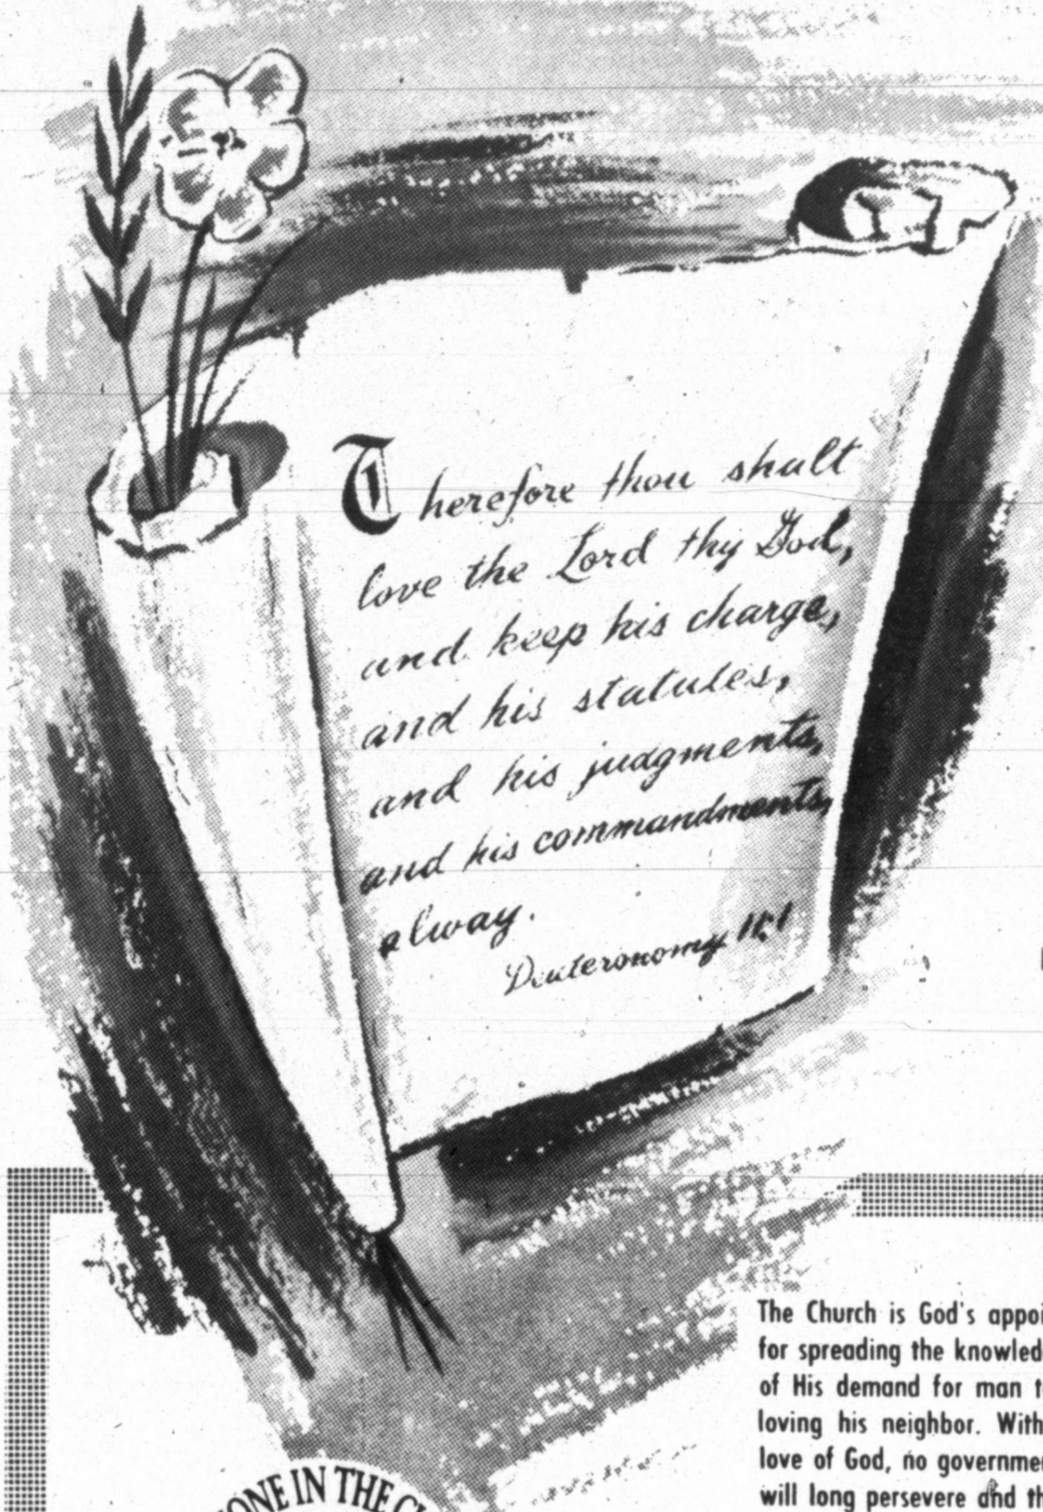 Therefore thou shalt
love the Lord thy God,
and keep his charge,
and his statutes,
and his judgments,
and his commandments,
alway.
Deuteronomy 11:1
The Church is God's appoi
for spreading the knowled
of His demand for man t
loving his neighbor. With
love of God, no governme
will long persevere and th
ONE IN THE C